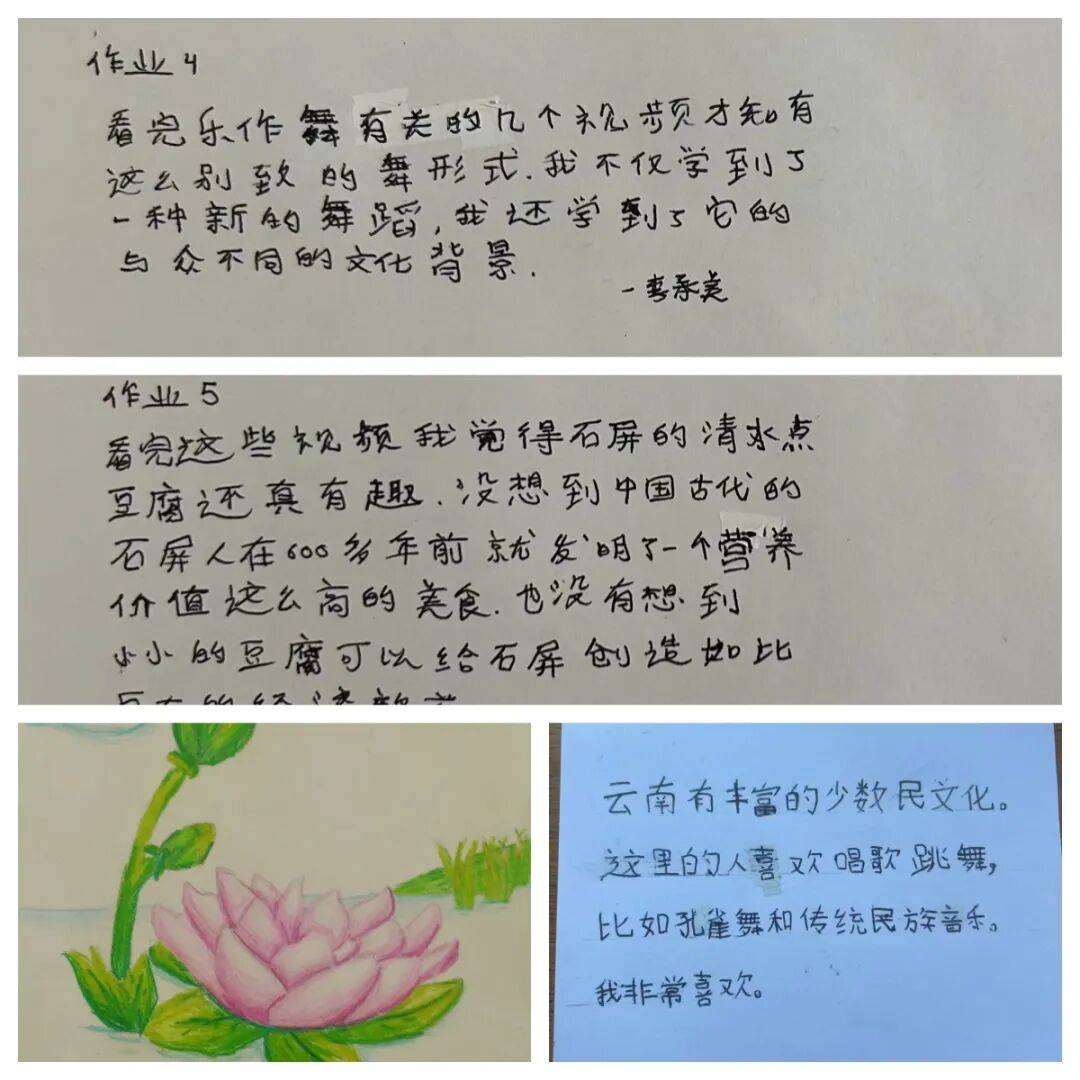 作业 4
看完乐作舞有关的几个视频才知有
这么别致的舞形式.我不仅学到了
一种新的舞蹈,我还学到了它的
与众不同的文化背景.
-李承美
作业 5
看完这些视频我觉得石屏的清水点
豆腐还真有趣.没想到中国古代的
石屏人在600多年前就发明了一个营养
价值这么高的美食.也没有想到
小小的豆腐可以给石屏创造如比
云南有丰富的少数民文化。
这里的人喜欢唱歌跳舞,
比如孔雀舞和传统民族音乐。
我非常喜欢。